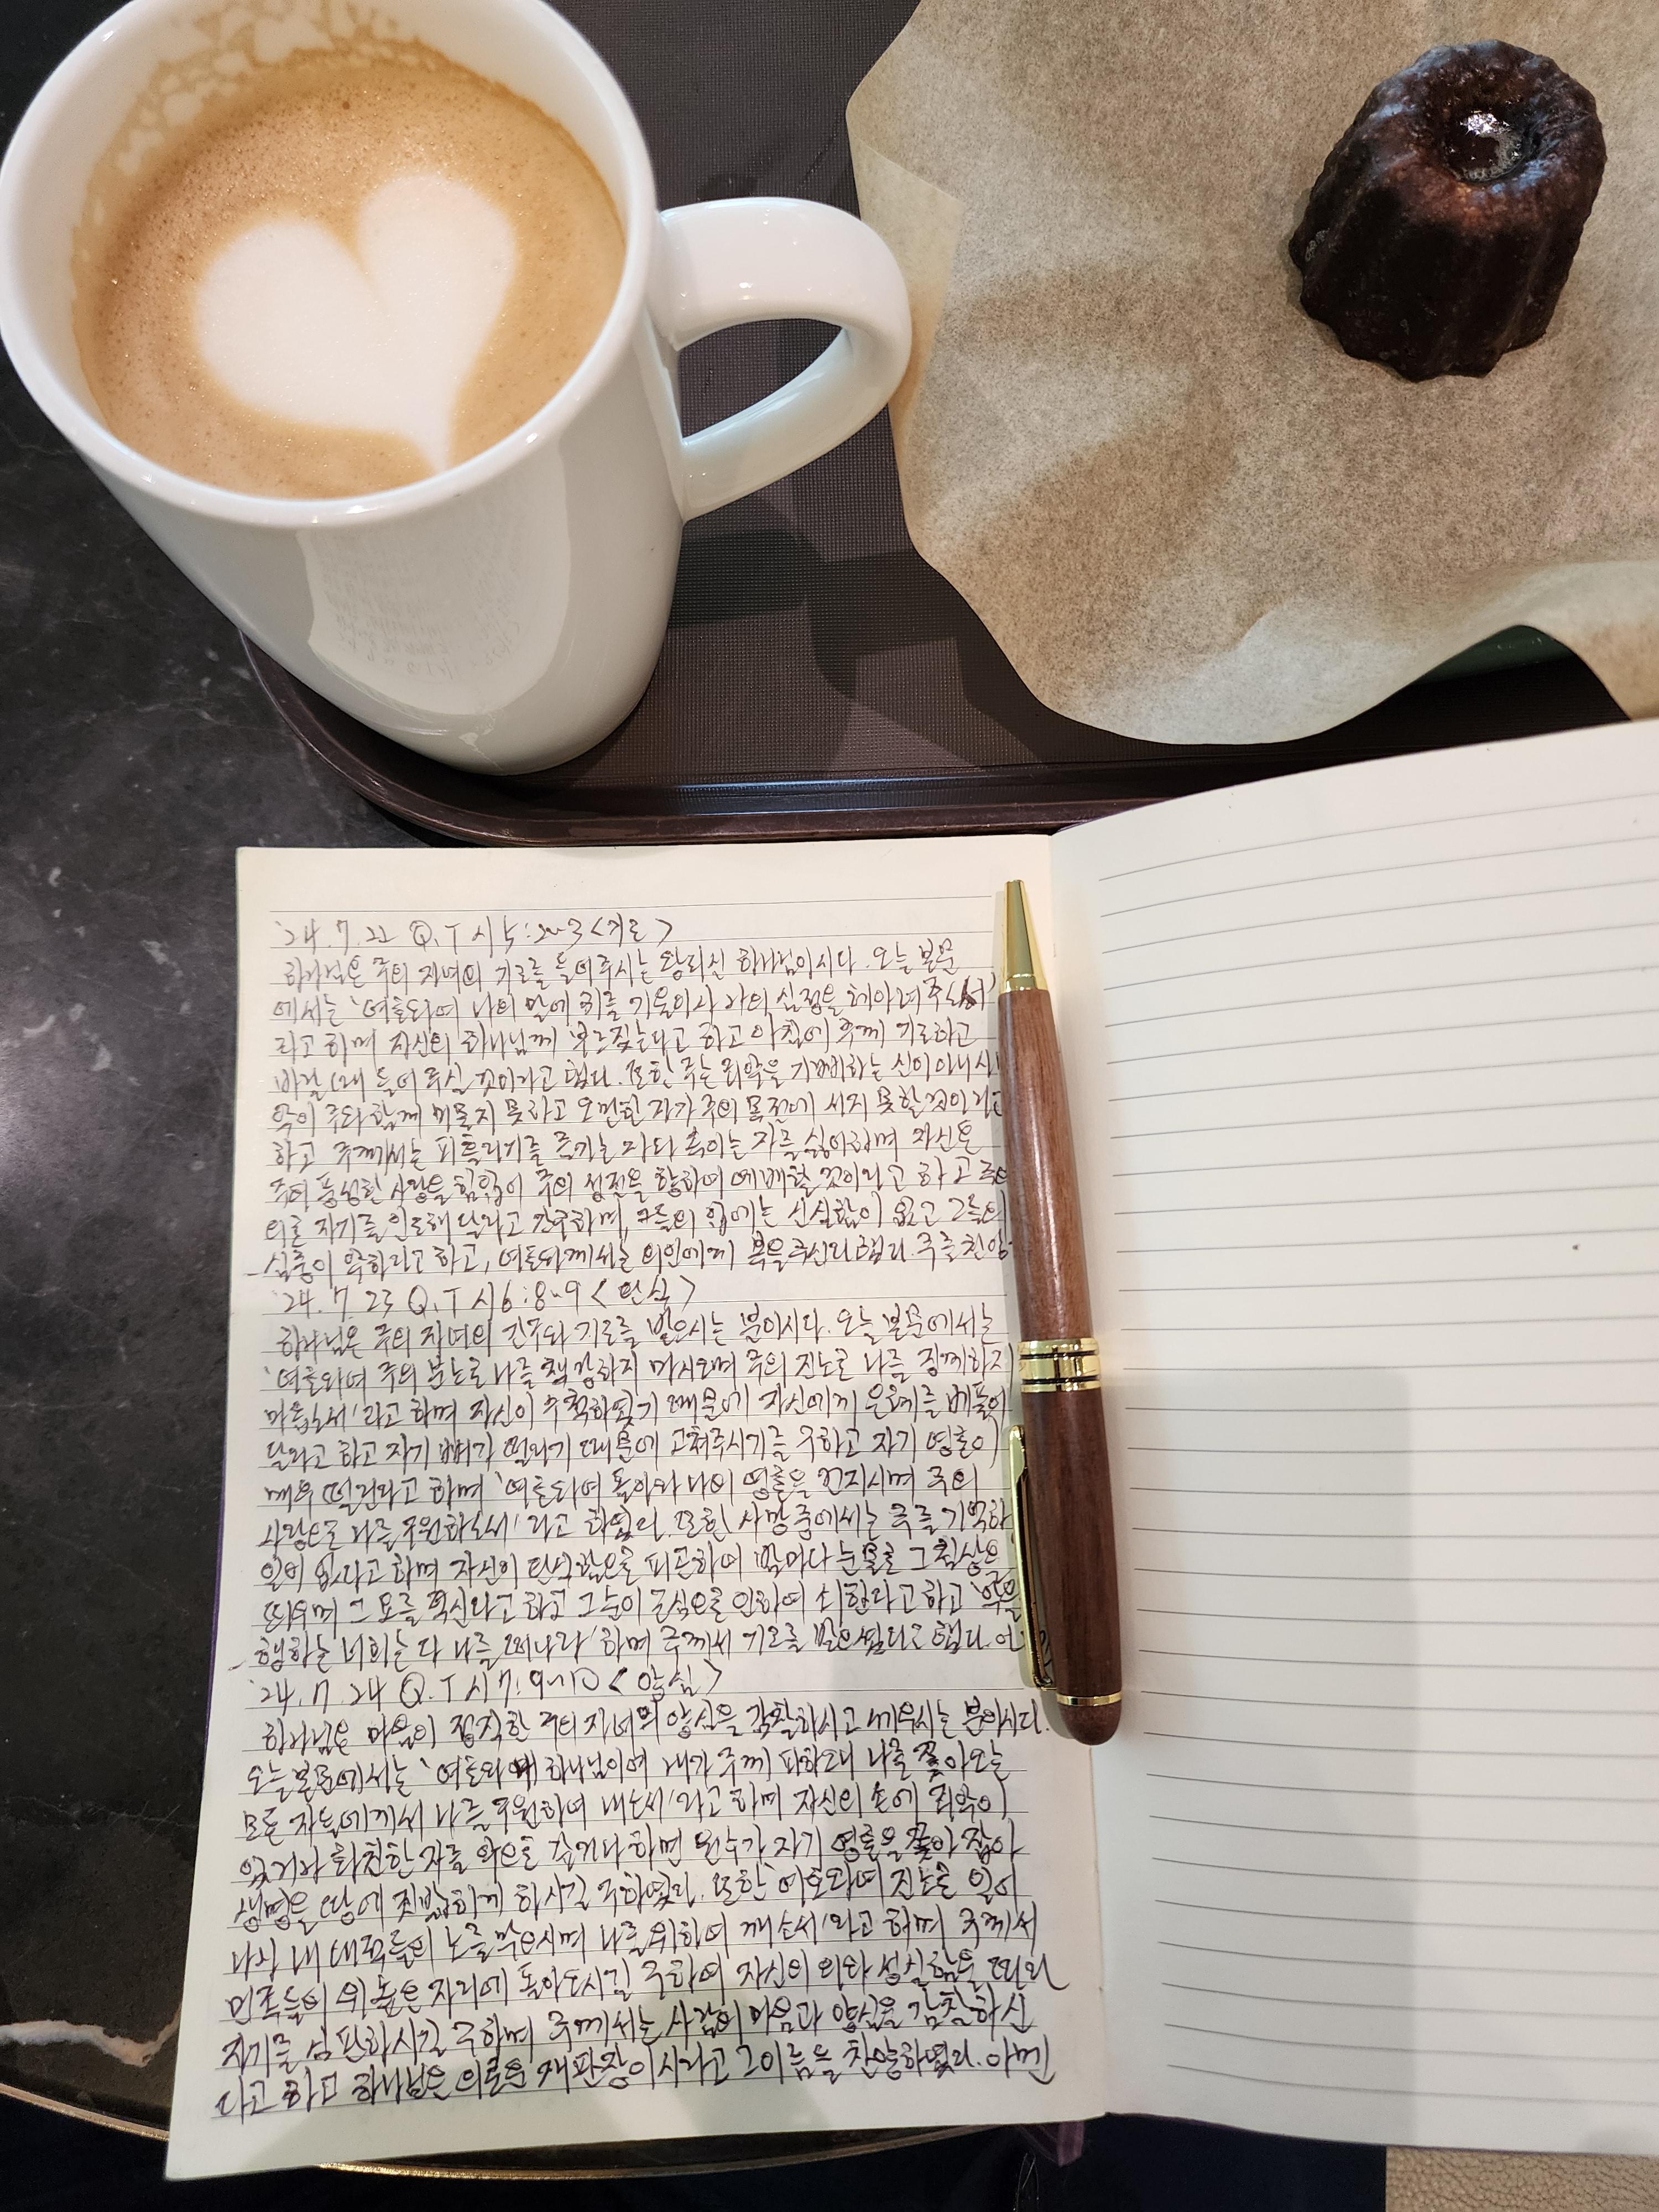 '24.7.22 Q.T 시5:2~3 <기도>
하나님은 주의 자녀의 기도를 들어주시는 왕되신 하나님이시다. 오늘 본문
에서는 '여호와여 나의 말에 귀를 기울이사 나의 심정을 헤아려 주소서'
라고 하며 자신의 하나님께 부르짖는다고 하고 아침에 주께 기도하고
바랄 때 들어 주실 것이라고 했다. 또한 주는 죄악을 기뻐하는 신이 아니시
악이 주와 함께 머물지 못하고 오만한 자가 주의 목전에 서지 못할 것이라고
하고 주께서는 피흘리기를 즐기는 자와 속이는 자를 싫어하며 자신은
주의 풍성한 사랑을 힘입어 주의 성전을 향하여 예배할 것이라고 하고 주의
의로 자기를 인도해 달라고 간구하며, 그들의 입에는 신실함이 없고 그들의
심중이 악하다고 하고, 여호와께서는 의인에게 복을 주신다 했다. 주를 찬양
'24.7.23 Q.T 시6:8~9 <탄식>
하나님은 주의 자녀의 간구와 기도를 받으시는 분이시다. 오늘 본문에서는
'여호와여 주의 분노로 나를 책망하지 마시오며 주의 진노로 나를 징계하지
마옵소서'라고 하며 자신이 수척하였기 때문에 자신에게 은혜를 베풀어
달라고 하고 자기 뼈가 떨리기 때문에 고쳐주시기를 구하고 자기 영혼이
매우 떨린다고 하며 '여호와여 돌아와 나의 영혼을 건지시며 주의
사랑으로 나를 구원하소서'라고 하였다. 또한 사망 중에서는 주를 기억하
일이 없다고 하며 자신이 탄식함으로 피곤하여 밤마다 눈물로 그 침상을
띄우며 그 요를 적신다고 하고 그 눈이 근심으로 인하여 쇠한다고 하고 '악을
행하는 너희는 다 나를 떠나라' 하며 주께서 기도를 받으셨다고 했다.
'24.7.24 Q.T 시7:9~10 <양심>
하나님은 마음이 정직한 주의 자녀의 양심을 감찰하시고 세우시는 분이시다.
오늘 본문에서는 '여호와 내 하나님이여 내가 주께 피하오니 나를 쫓아오는
모든 자들에게서 나를 구원하여 내소서'라고 하며 자신의 손에 죄악이
있거나 화친한 자를 악으로 갚거나 하면 원수가 자기 영혼을 쫓아 잡아
생명을 땅에 짓밟히게 하시길 구하였다. 또한 '여호와여 진노로 일어
나사 내 대적들의 노를 막으시며 나를 위하여 깨소서'라고 하며 주께서
민족들의 위 높은 자리에 돌아오시길 구하여 자신의 의와 성실함을 따라
자기를 심판하시길 구하며 주께서는 사람의 마음과 양심을 감찰하신
다고 하고 하나님은 의로운 재판장이시라고 그 이름을 찬양하였다. 아멘